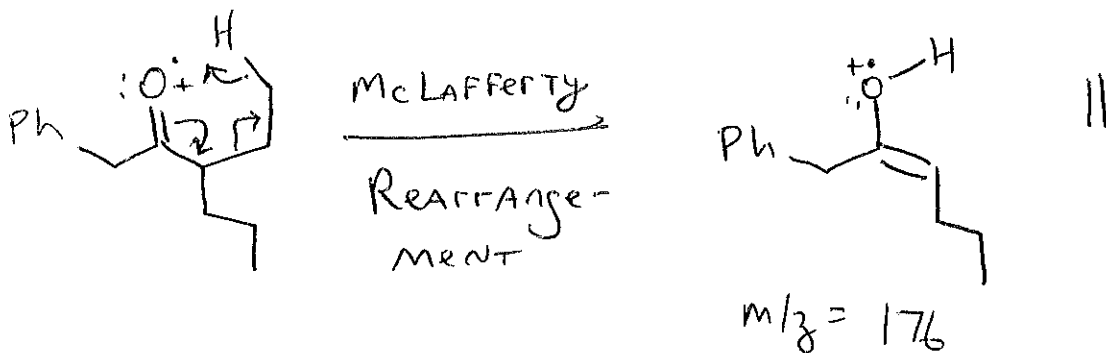 H
:O·+
Ph
McLafferty
Rearrange-
ment
+·
:O-H
Ph
||
m/z = 176